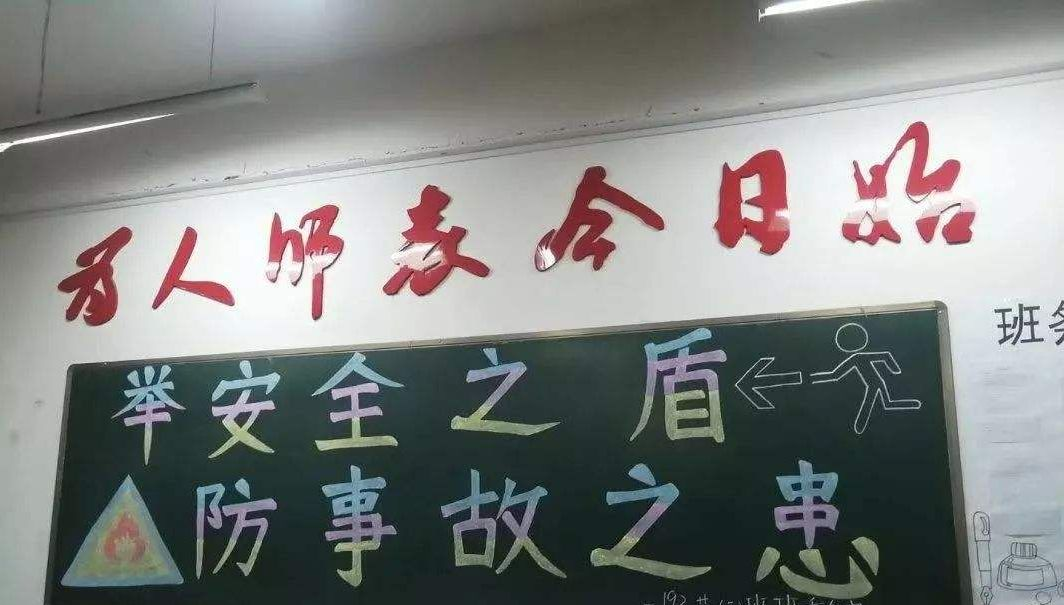 为人师表今日始
举安全之盾
防事故之患
班务